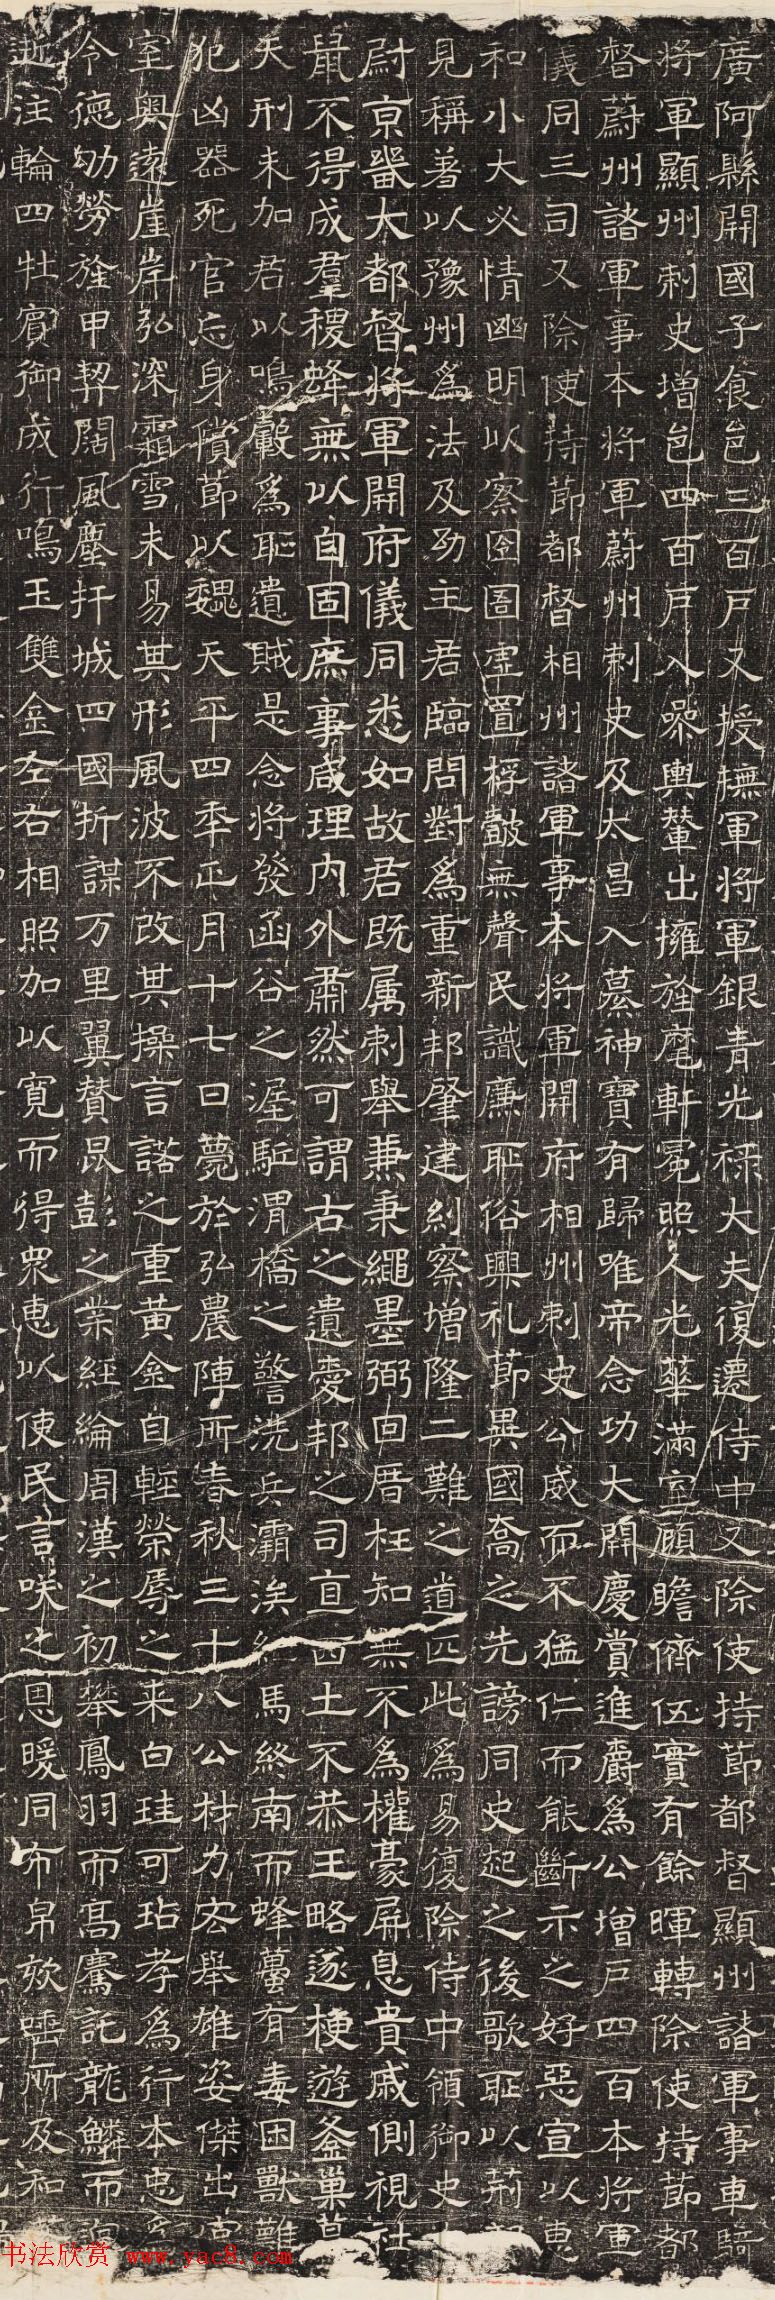 廣阿縣開國子食邑三百戶又授撫軍將軍銀青光祿大夫復遷侍中又除使持節都督顯州諸軍事車騎
將軍顯州刺史增邑四百戶入參輿輦出擁旌麾軒冕照人光華滿室顧瞻儕伍實有餘暉轉除使持節都
督蔚州諸軍事本將軍蔚州刺史及大昌入纂神寶有歸唯帝念功大開慶賞進爵為公增戶四百本將軍
儀同三司又除使持節都督相州諸軍事本將軍開府相州刺史公威而不猛仁而能斷示之好惡宣以惠
和小大必情幽明以察囹圄虛置桴鼓無聲民識廉恥俗興礼節異國喬之先謗同史起之後歌耻以荊
見稱著以豫州為法及劲主君臨問對為重新邦肇建糾察增隆二難之道匹此為易復除侍中領御史
尉京畿大都督將軍開府儀同悉如故君既属刺舉兼秉繩墨弼回厝枉知無不為權豪屏息貴戚側視社
鼠不得成羣稷蜂無以自固庶事咸理內外肅然可謂古之遺愛邦之司直西土不恭王略遂梗遊釜巢
天刑未加君以鳴轂為耻遺賊是念將發函谷之涯駈渭橋之警洗兵灞涘 馬終南而蜂蠆有毒困獸難
犯凶器死官忘身償節以魏天平四年正月十七日薨於弘農陣所春秋三十八公材力宏舉雄姿傑出
室奧遠崖岸弘深霜雪未易其形風波不改其操言諾之重黃金自輕榮辱之来白珪可玷孝為行本忠
令德劬勞旌甲契闊風塵扞城四國折謀万里翼贊昆彭之業經綸周漢之初攀鳳羽而高騫託龍鱗而
逝注輪四牡賓御成行鳴玉雙金左右相照加以寬而得眾惠以使民言咲之恩暖同布帛欬唾所及和
书法欣赏 www.yac8.com